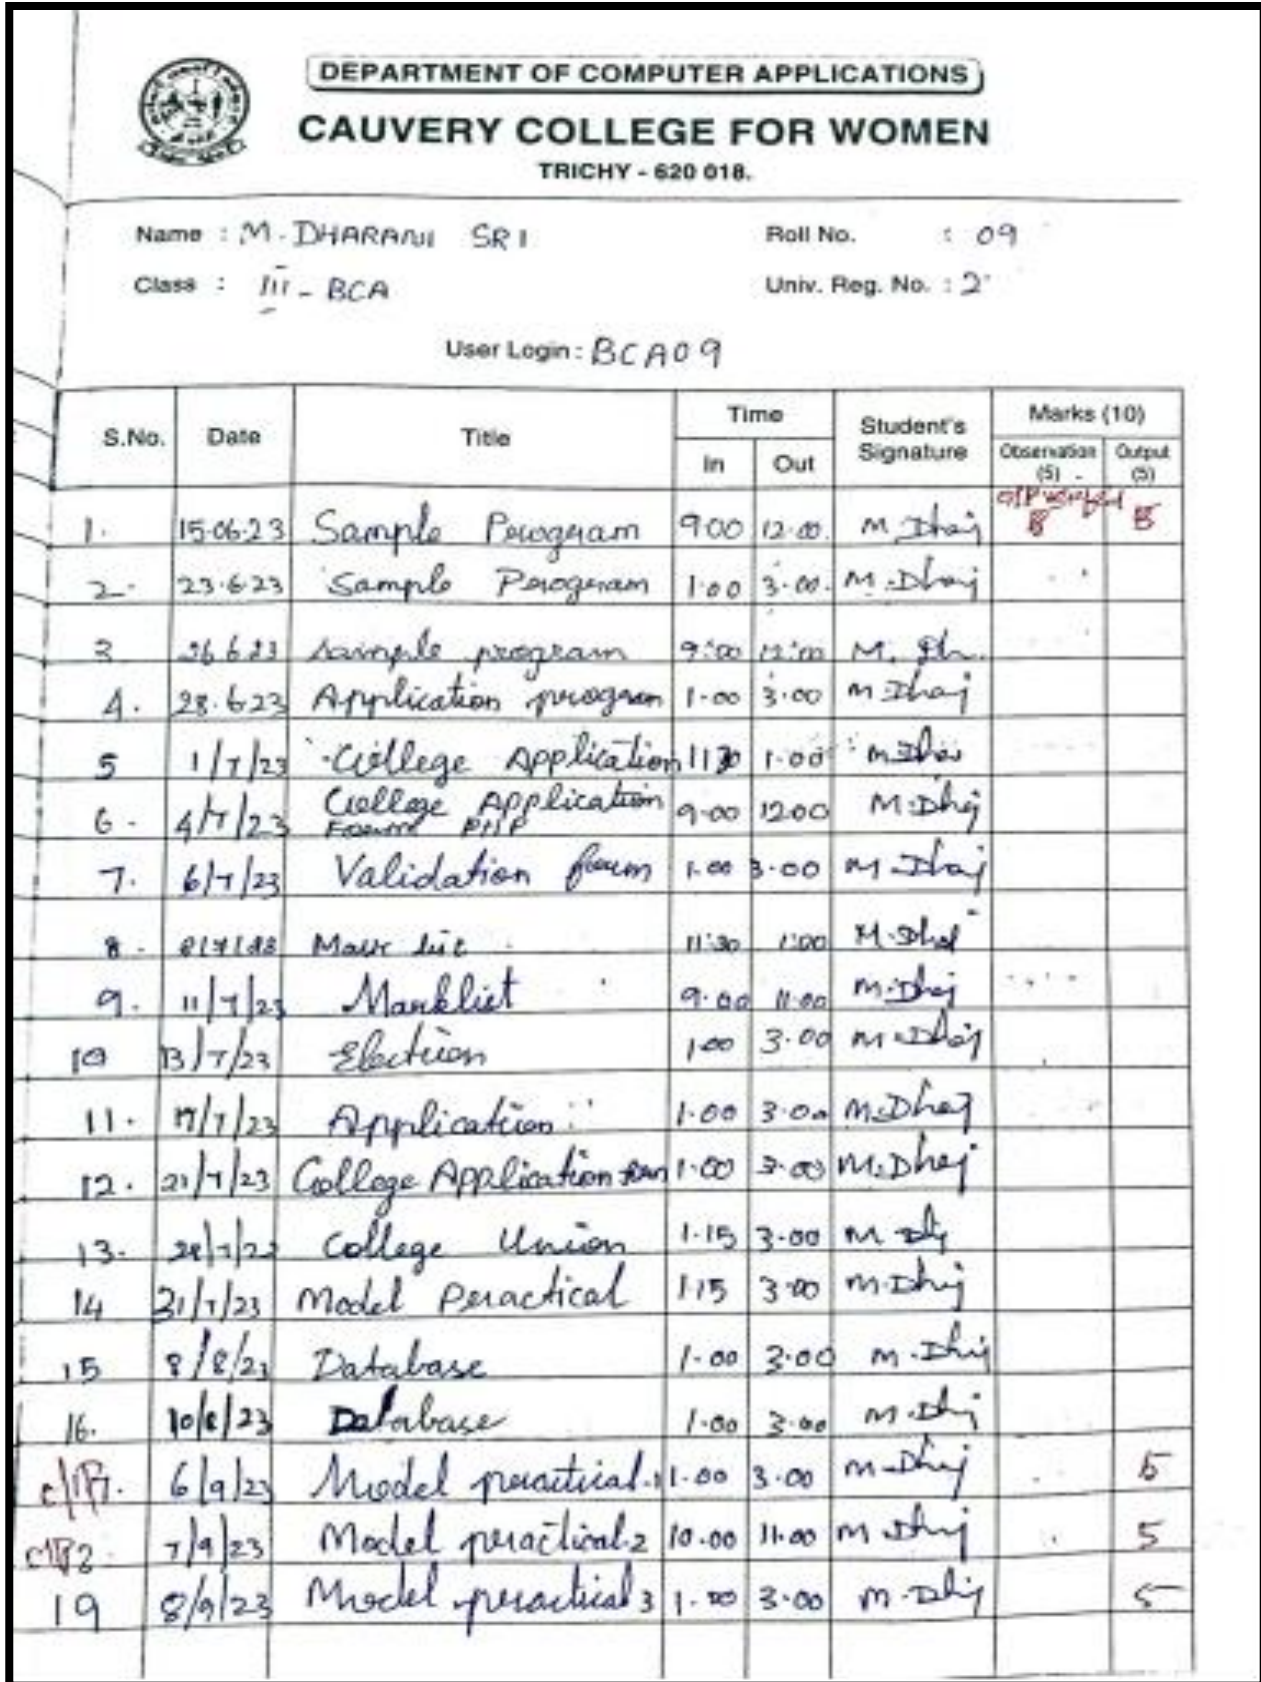 DEPARTMENT OF COMPUTER APPLICATIONS
CAUVERY COLLEGE FOR WOMEN
TRICHY - 620 018.
Name : M. DHARANI SRI Roll No. : 09
Class : III - BCA Univ. Reg. No. : 2
User Login : BCA09
S.No. Date Title Time Student's Signature Marks (10)
In Out Observation (5) Output (5)
1. 15.06.23 Sample Program 9.00 12.00. M. Dhaj 5
2. 23.6.23 Sample Program 1.00 3.00. M. Dhaj
3 26.6.23 sample program 9:00 12:00 M. Dh.
4. 28.6.23 Application program 1.00 3.00 M Dhaj
5 1/7/23 College Application 11 30 1.00 M Dhaj
6. 4/7/23 College Application Form PHP 9.00 12.00 M. Dhaj
7. 6/7/23 Validation form 1.00 3.00 M. Dhaj
8. 8/7/23 11:30 1:00 M. Dhaj
9. 11/7/23 Marklist 9.00 11.00 M. Dhaj
10 13/7/23 Election 1.00 3.00 M. Dhaj
11. 17/7/23 Application 1.00 3.00 M. Dhaj
12. 21/7/23 College Application form 1.00 3.00 M. Dhaj
13. 28/7/23 College Union 1.15 3.00 M. Dhj
14 31/7/23 Model Practical 1.15 3.00 M. Dhj
15 8/8/23 Database 1.00 3.00 M. Dhj
16. 10/8/23 Database 1.00 3.00 M. Dhj
6/9/23 Model practical.1 1.00 3.00 M. Dhaj 5
7/9/23 Model practical.2 10.00 11.00 M Dhj 5
19 8/9/23 Model practical 3 1.00 3.00 M. Dhj 5